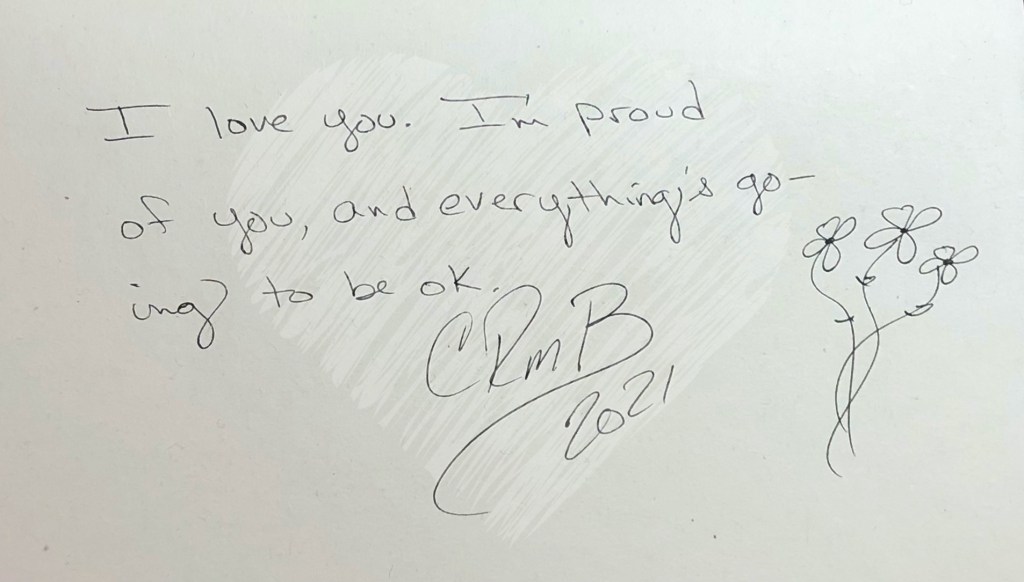 I love you. I'm proud
of you, and everything's go-
ing to be ok.
CRmB
2021